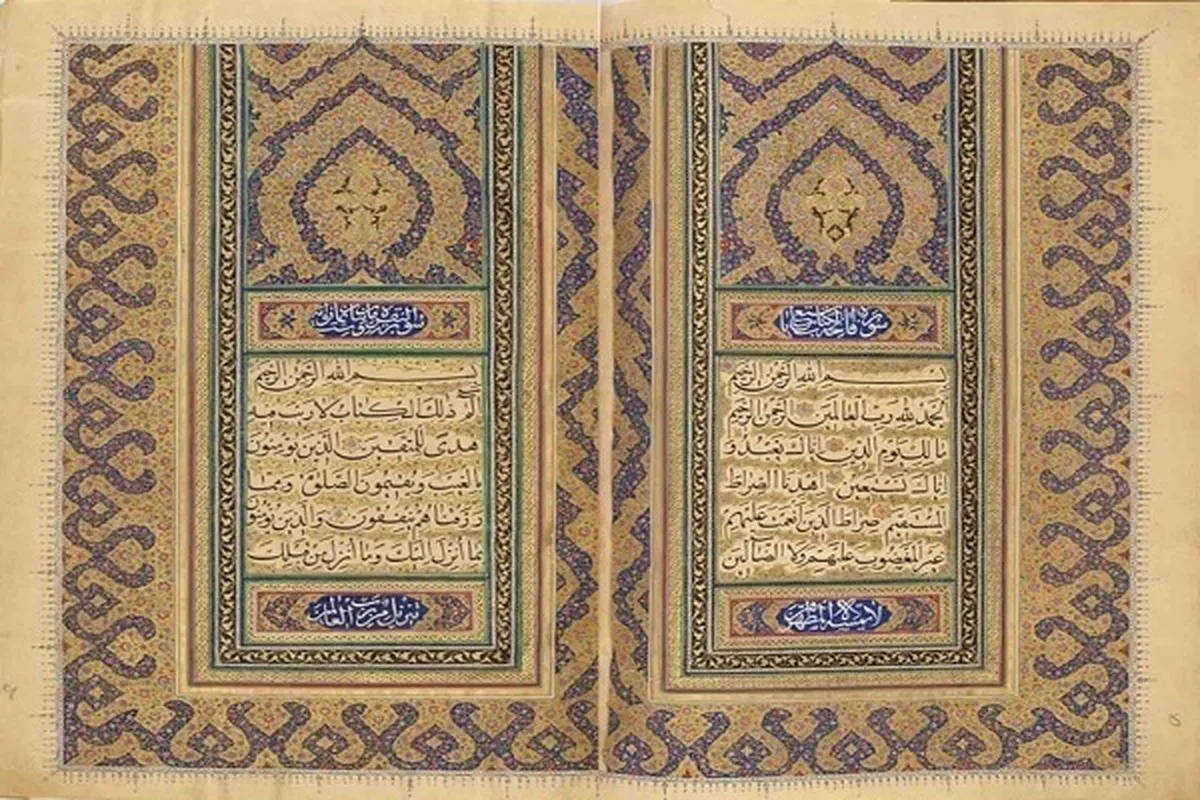 سورة فاتحة الكتاب سبع آيات
بسم الله الرحمن الرحيم
الحمد لله رب العالمين الرحمن الرحيم
مالك يوم الدين إياك نعبد و
إياك نستعين اهدنا الصراط
المستقيم صراط الذين أنعمت عليهم
غير المغضوب عليهم ولا الضالين
لا يمسه إلا المطهرون
سورة البقرة
بسم الله الرحمن الرحيم
الم ذلك الكتاب لا ريب فيه
هدى للمتقين الذين يؤمنون
بالغيب ويقيمون الصلوة ومما
رزقناهم ينفقون والذين يؤمنون
بما أنزل إليك وما أنزل من قبلك
تنزيل من رب العالمين